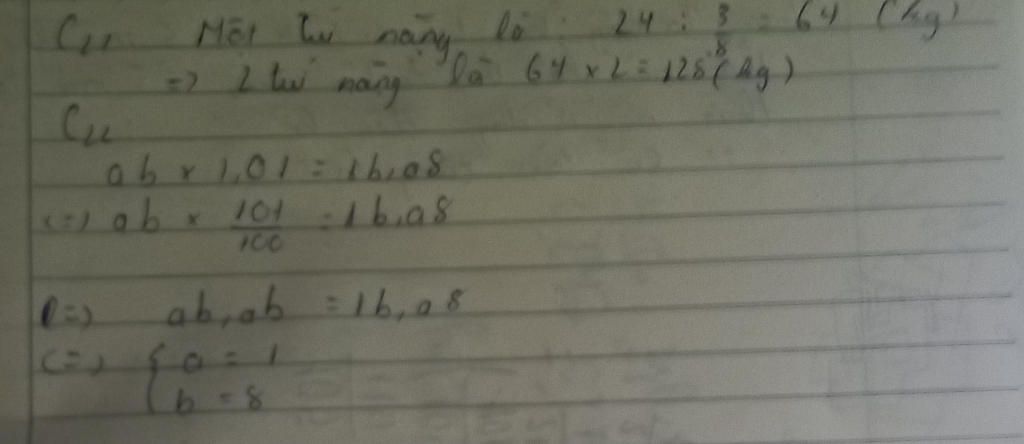 C11 Một túi nặng là: 24 : 3/8 = 64 (kg)
=> 2 túi nặng là 64 x 2 = 128 (kg)
C12
ab x 1,01 = 1b,a8
<=> ab x 101/100 = 1b,a8
<=> ab,ab = 1b,a8
<=> { a = 1
b = 8